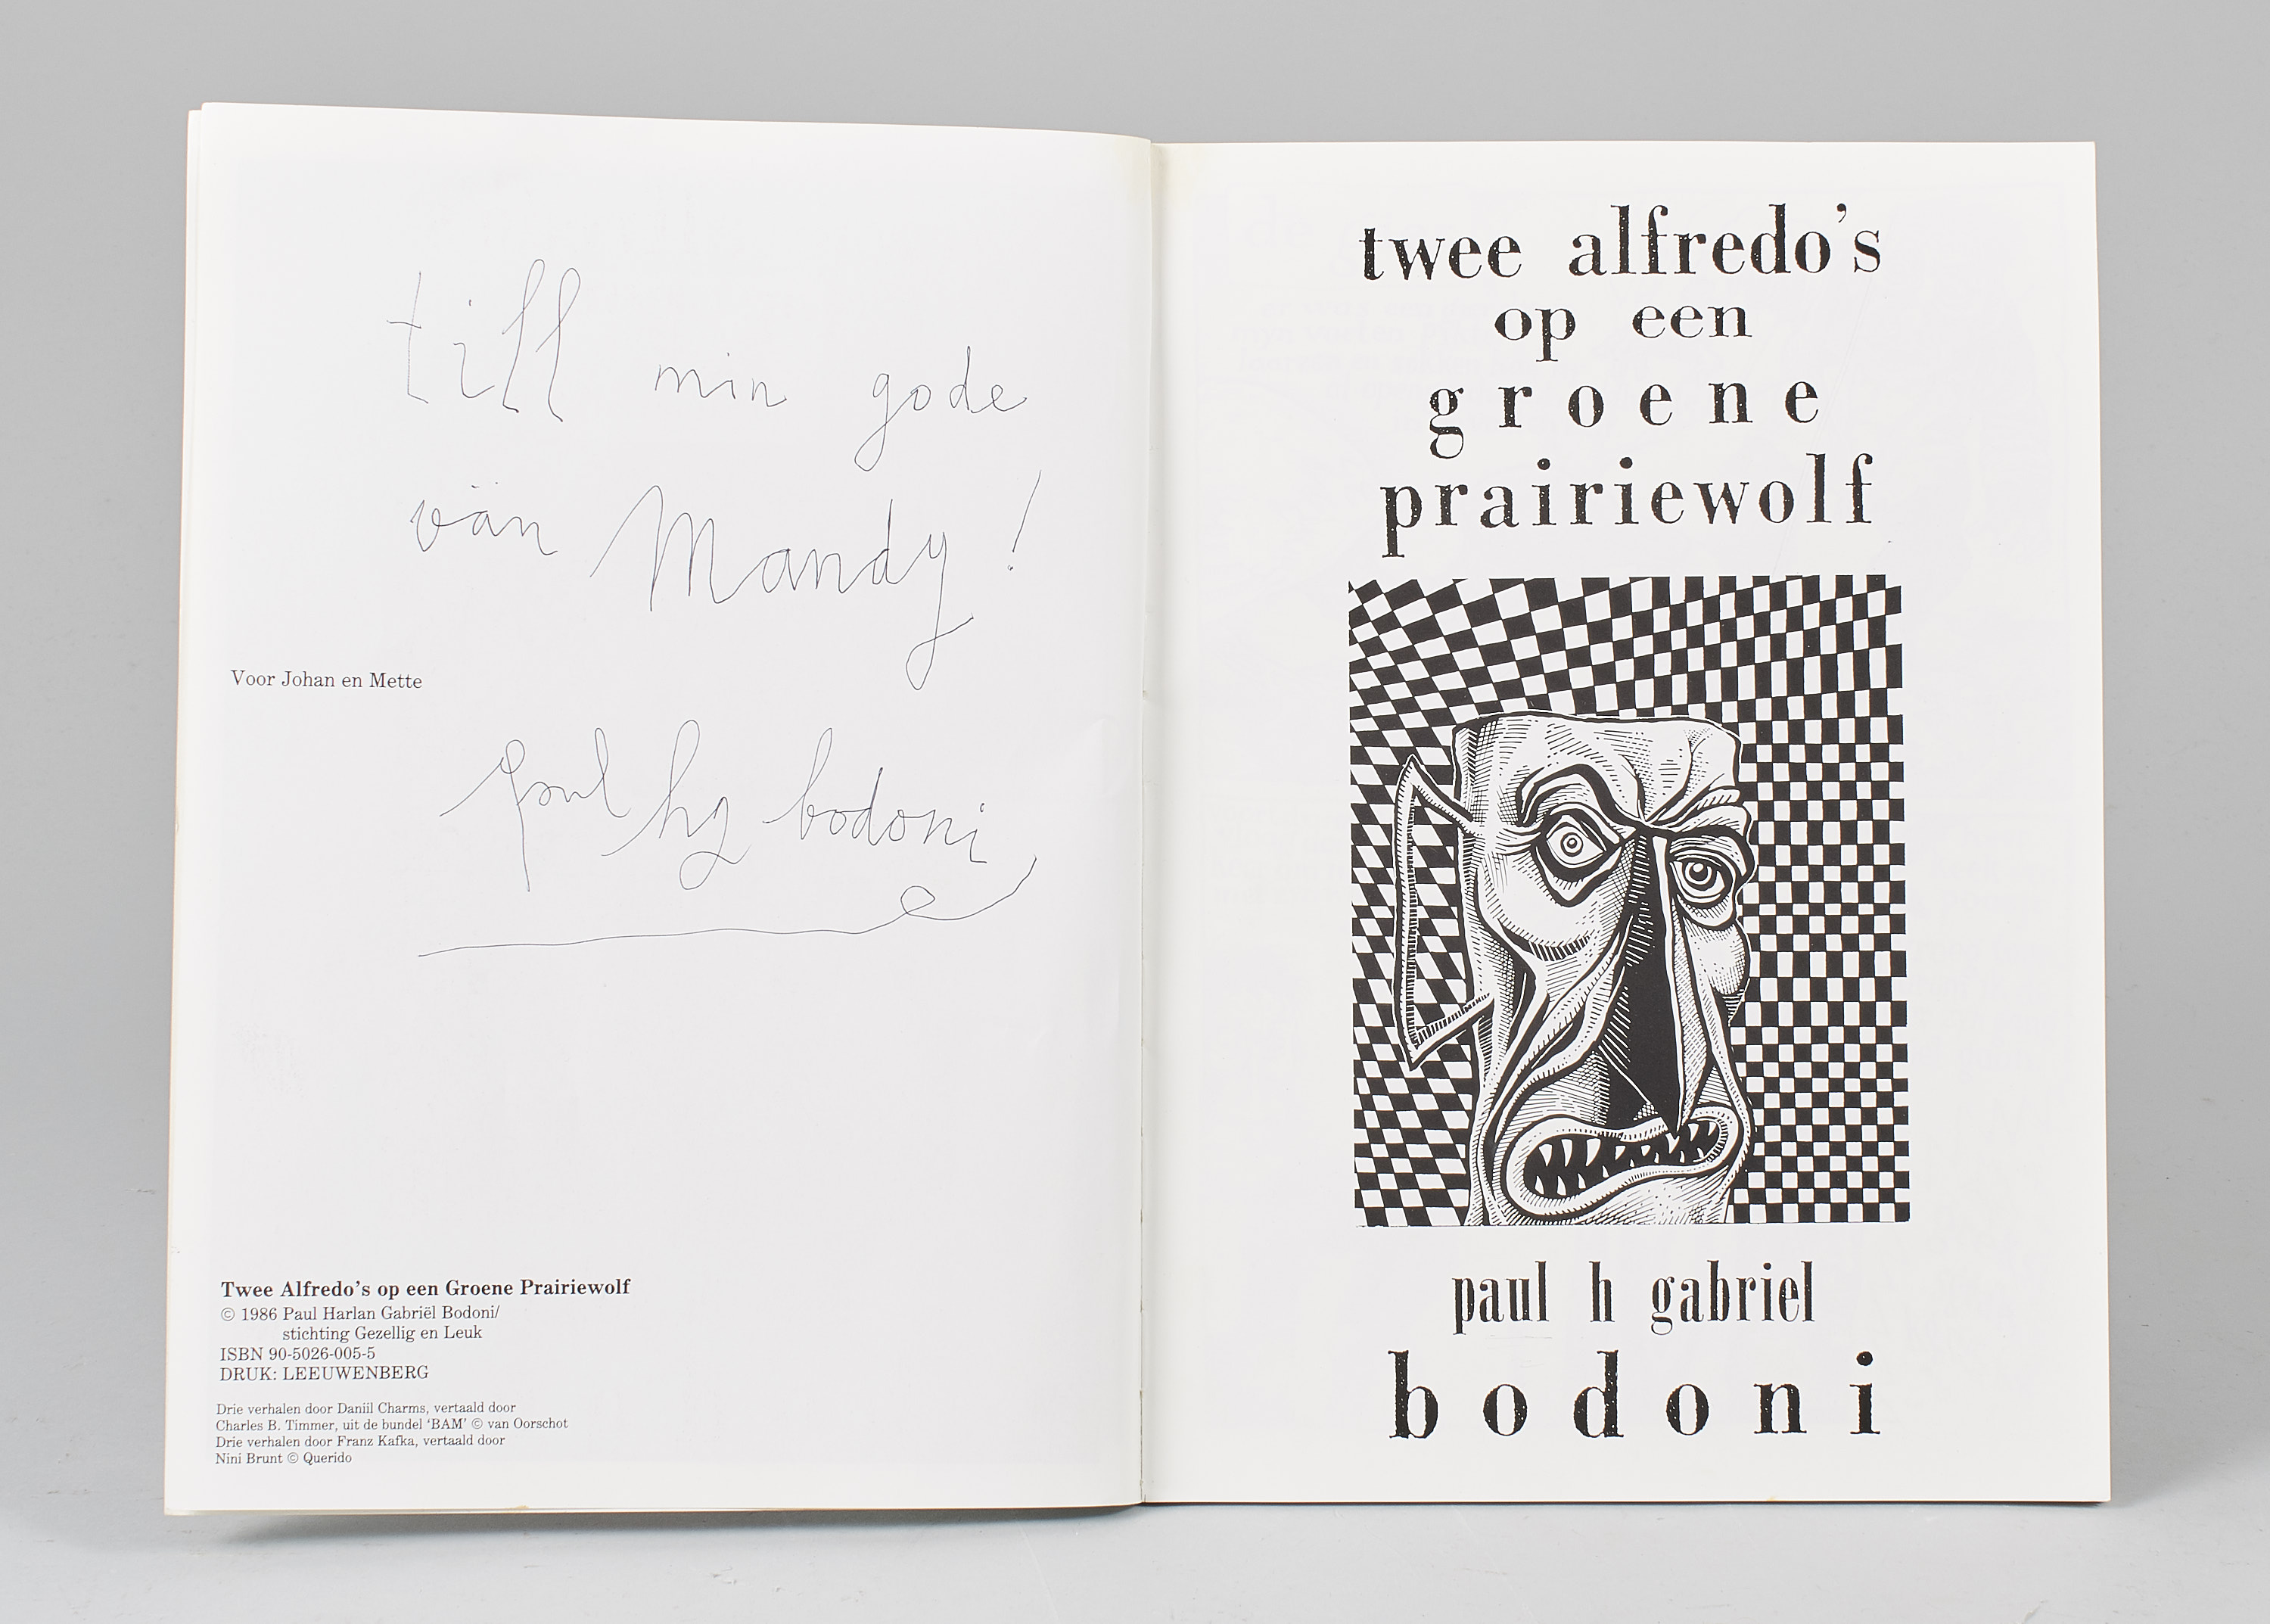 till min gode
vän Mandy!
Voor Johan en Mette
paul hg bodoni
Twee Alfredo's op een Groene Prairiewolf
© 1986 Paul Harlan Gabriël Bodoni/
stichting Gezellig en Leuk
ISBN 90-5026-005-5
DRUK: LEEUWENBERG
Drie verhalen door Daniil Charms, vertaald door
Charles B. Timmer, uit de bundel ‘BAM’ © van Oorschot
Drie verhalen door Franz Kafka, vertaald door
Nini Brunt © Querido
twee alfredo's
op een
groene
prairiewolf
paul h gabriel
bodoni